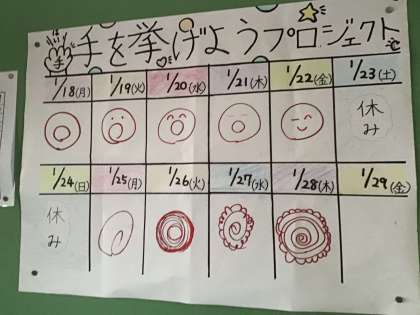 は
手 手を挙げようプロジェクト
1/18(月) 1/19(火) 1/20(水) 1/21(木) 1/22(金) 1/23(土)
休み
1/24(日) 1/25(月) 1/26(火) 1/27(水) 1/28(木) 1/29(金)
休み